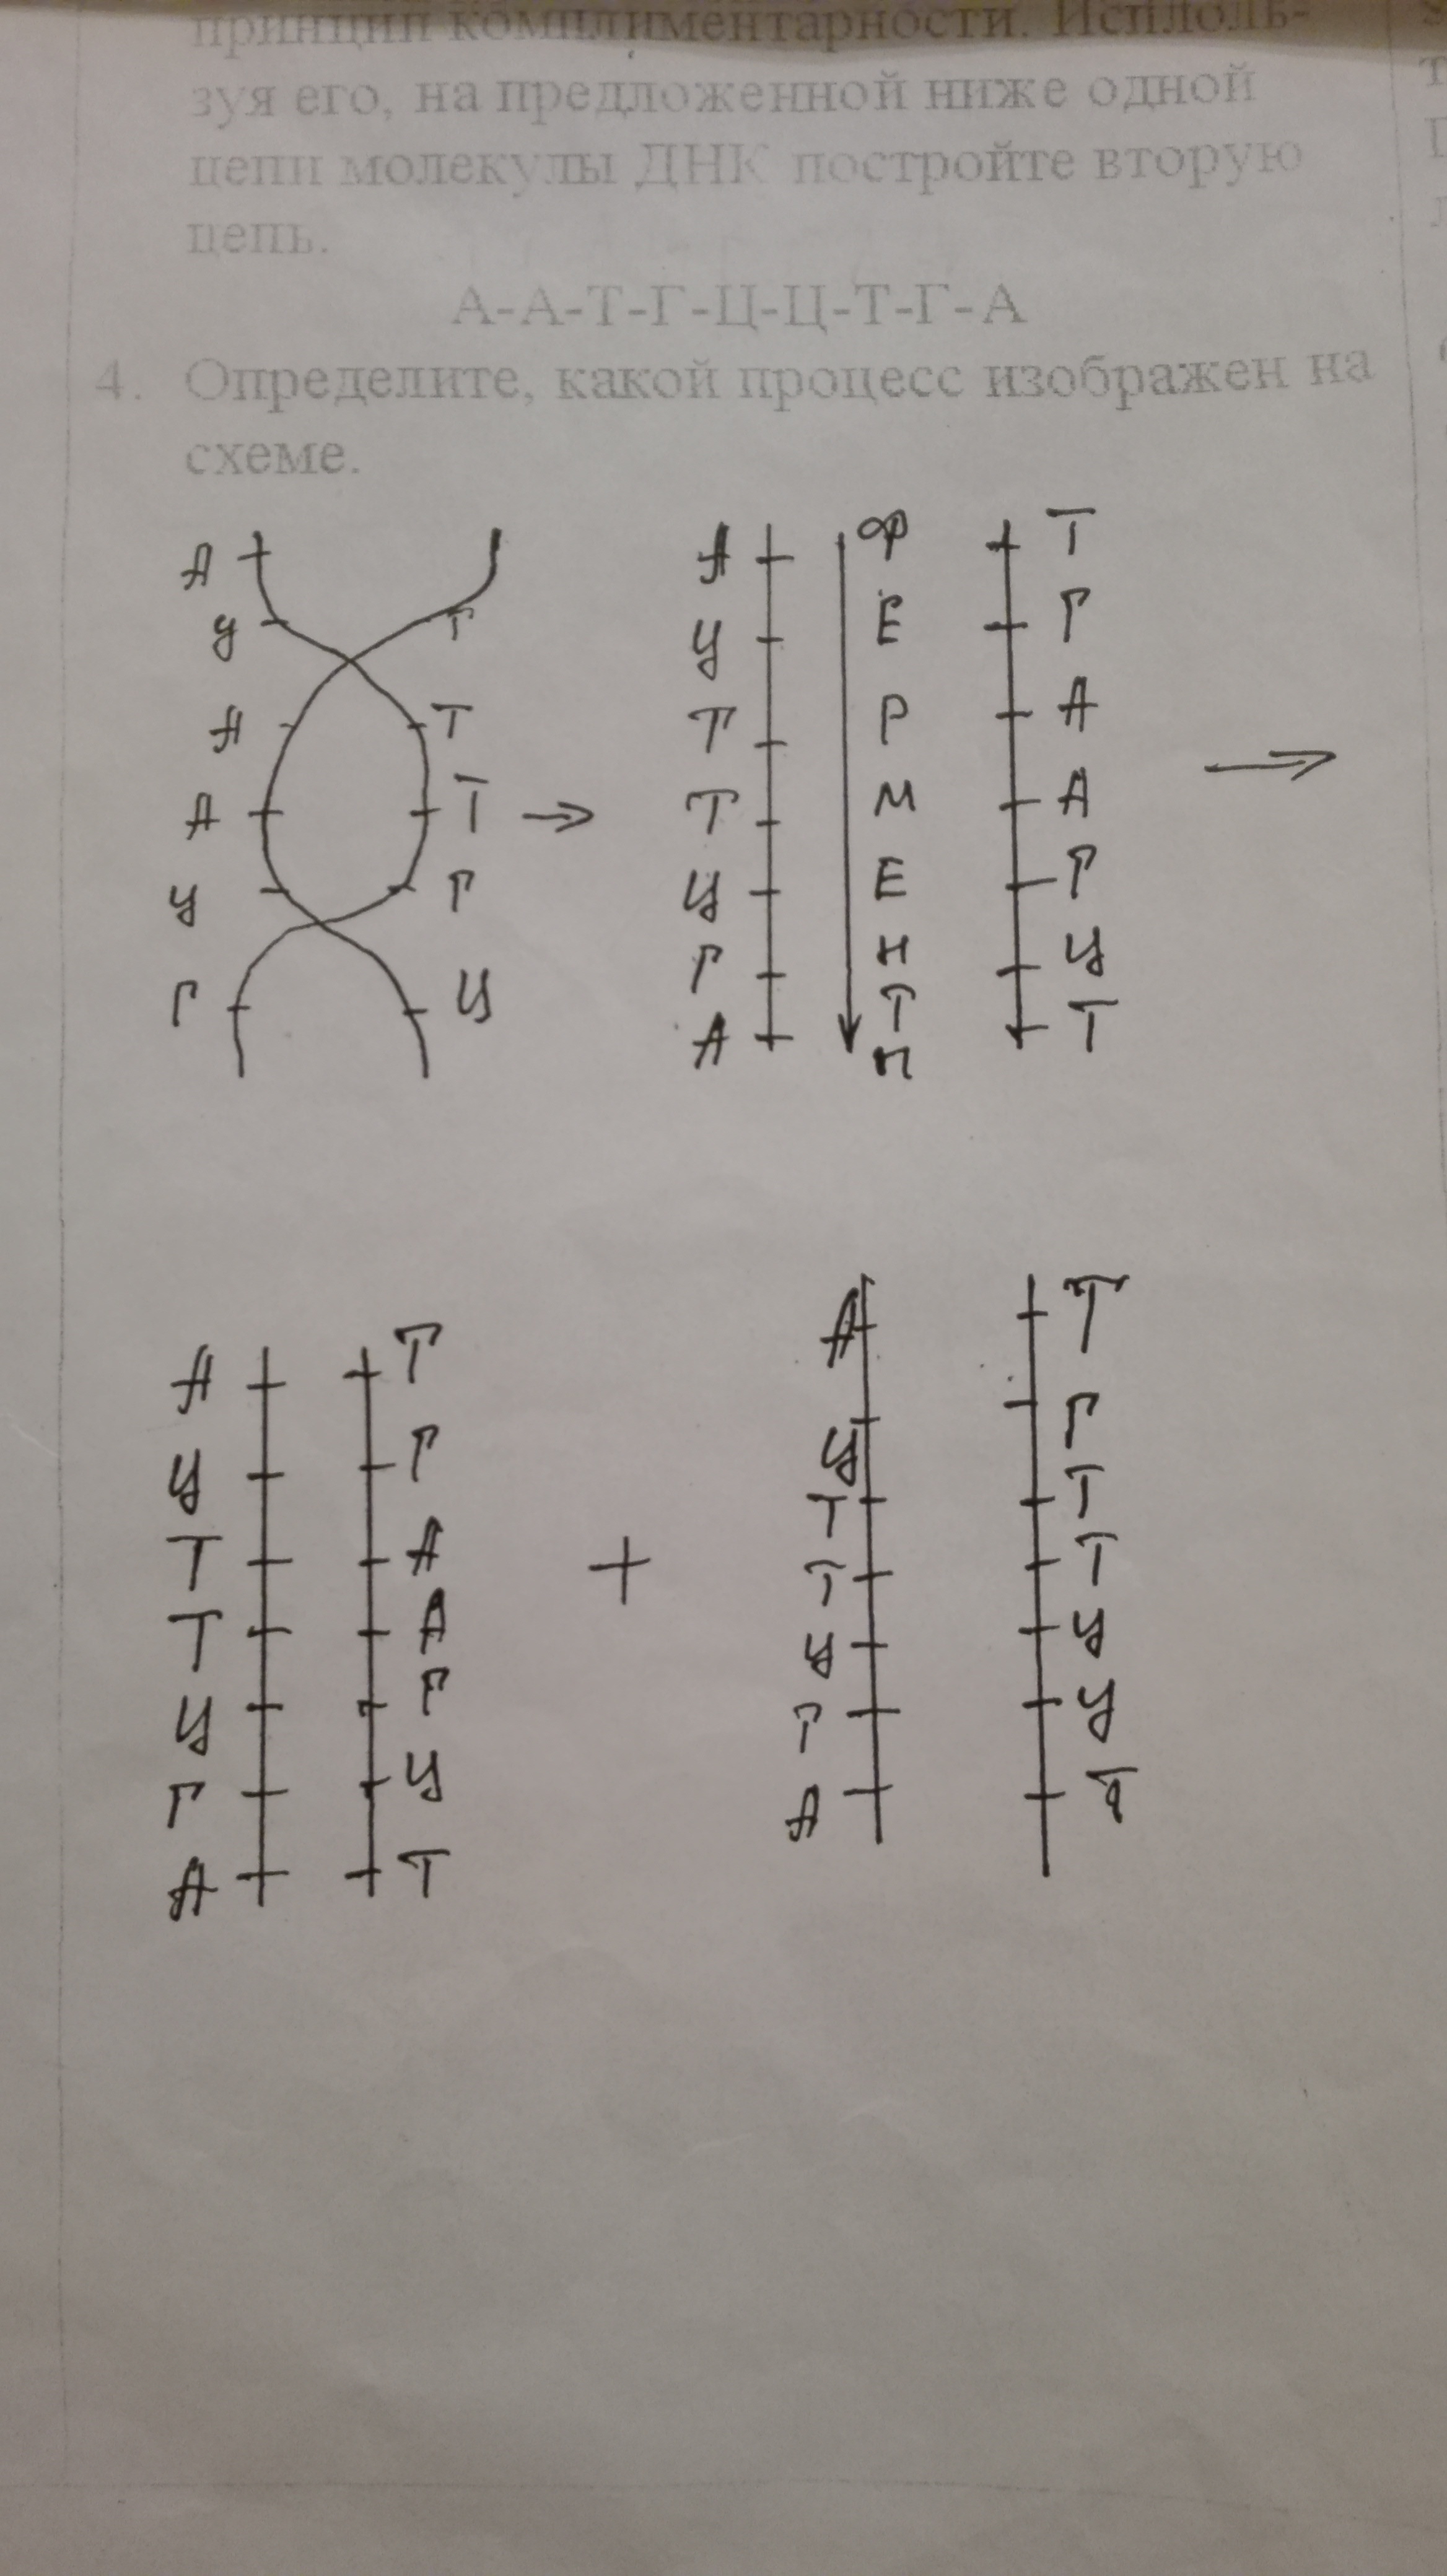 принцип комплиментарности. Исплоль-
зуя его, на предложенной ниже одной
цепи молекулы ДНК постройте вторую
цепь.
А-А-Т-Г-Ц-Ц-Т-Г-А
4. Определите, какой процесс изображен на
схеме.
А
Ц Г
А Т
А Т
Ц Г
Г Ц
А Ф Т
Ц Е Г
Т Р А
Т М А
Ц Е Г
Г Н Ц
А Т Т
Ы
А Т
Ц Г
Т А
Т А
Ц Г
Г Ц
А Т
+
А Т
Ц Г
Т Т
Т Т
Ц Ц
Г Ц
А Т